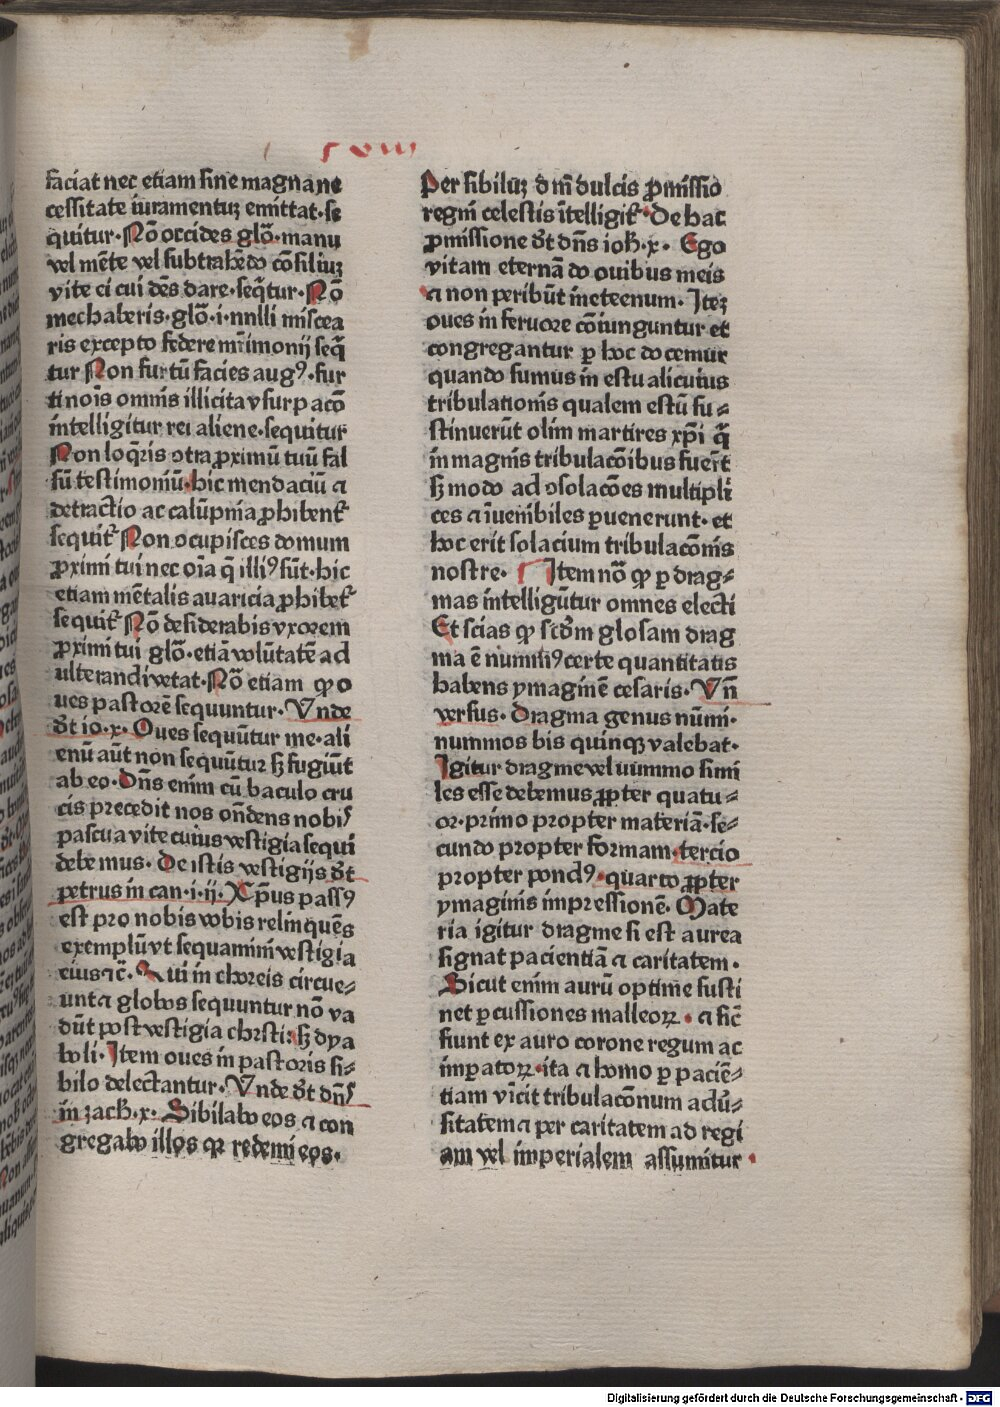 faciat nec etiam sine magna ne
cessitate iuramentuꝫ emittat·se
quitur·Nō occides glō·manu
vel mēte vel subtrahēdo cōsiliuꝫ
vite ei cui dēs dare·seq̄tur·Nō
mechaberis·glō·i·nulli miscea
ris excepto federe mr̄imonij seq̄
tur Non furtū facies augꝰ·fur
ti noīs omnis illicita vsurpacō
intelligitur rei aliene·sequitur
Non loq̄ris ɔtra ꝓximū tuū fal
sū testimoniū·hic mendaciū ⁊
detractio ac calūpnia ꝓhibent᷑
sequit᷑ Non ɔcupisces domum
ꝓximi tui nec oīa q̄ illiꝰ sūt·hic
etiam mētalis auaricia ꝓhibet᷑
sequit᷑ Nō desiderabis vxorem
ꝓximi tui glō·etiā volūtatē ad
ulterandi vetat·Nō etiam ꝙ o
ues pastorē sequuntur·Vnde
dt̄ io·x·Oues sequūtur me·ali
enū aūt non sequūtur sꝫ fugiūt
ab eo·Dn̄s enim cū baculo cru
cis precedit nos on̄dens nobis
pascua vite cuius vestigia sequi
debemus·De istis vestigijs dt̄
petrus in can·i·ij·Xp̄us passꝰ
est pro nobis vobis relinquēs
exemplū vt sequamini vestigia
eius ⁊c̄·Qui in choreis circue⸗
unt ⁊ globos sequuntur nō va
dūt post vestigia christi·sꝫ dya
boli·Item oues in pastoris si⸗
bilo delectantur·Vnde dt̄ dn̄s
in zach·x·Sibilabo eos ⁊ con
gregabo illos qꝛ redemi eos·
Per sibiluꝫ dn̄i dulcis ꝓmissio
regni celestis ītelligit᷑·De hac
ꝓmissione dt̄ dn̄s ioh·x·Ego
vitam eternā do ouibus meis
⁊ non peribūt ineteenum·Iteꝫ
oues in feruore cōiunguntur et
congregantur ꝑ hoc docemur
quando sumus in estu alicuius
tribulationis qualem estū su⸗
stinuerūt olim martires xp̄i q̄
in magnis tribulacōibus fuer̄t
sꝫ modo ad ɔsolacōes multipli
ces ⁊ īuenibiles ꝑuenerunt·et
hoc erit solacium tribulacōnis
nostre·Item nō ꝙ ꝑ drag⸗
mas intelligūtur omnes electi
Et scias ꝙ scd̄m glosam drag
ma ē nummꝰ certe quantitatis
habens ymaginē cesaris·Vn̄
versus·Dragma genus nūmi·
nummos bis quinqꝫ valebat·
Igitur dragme vel uummo simi
les esse debemus ꝓpter quatu⸗
or·primo propter materiā·se⸗
cundo propter formam·tercio
propter pondꝰ·quarto ꝓpter
ymaginis impressionē·Mate
ria igitur dragme si est aurea
signat pacientiā ⁊ caritatem·
Sicut enim aurū optime susti
net ꝑcussiones malleoꝝ·⁊ sic̄
fiunt ex auro corone regum ac
imꝑatoꝝ·ita ⁊ homo ꝑ pacien⸗
tiam vīcit tribulacōnum adū⸗
sitatem ⁊ per caritatem ad regi
am vel imperialem assumitur·
Digitalisierung gefördert durch die Deutsche Forschungsgemeinschaft - DFG